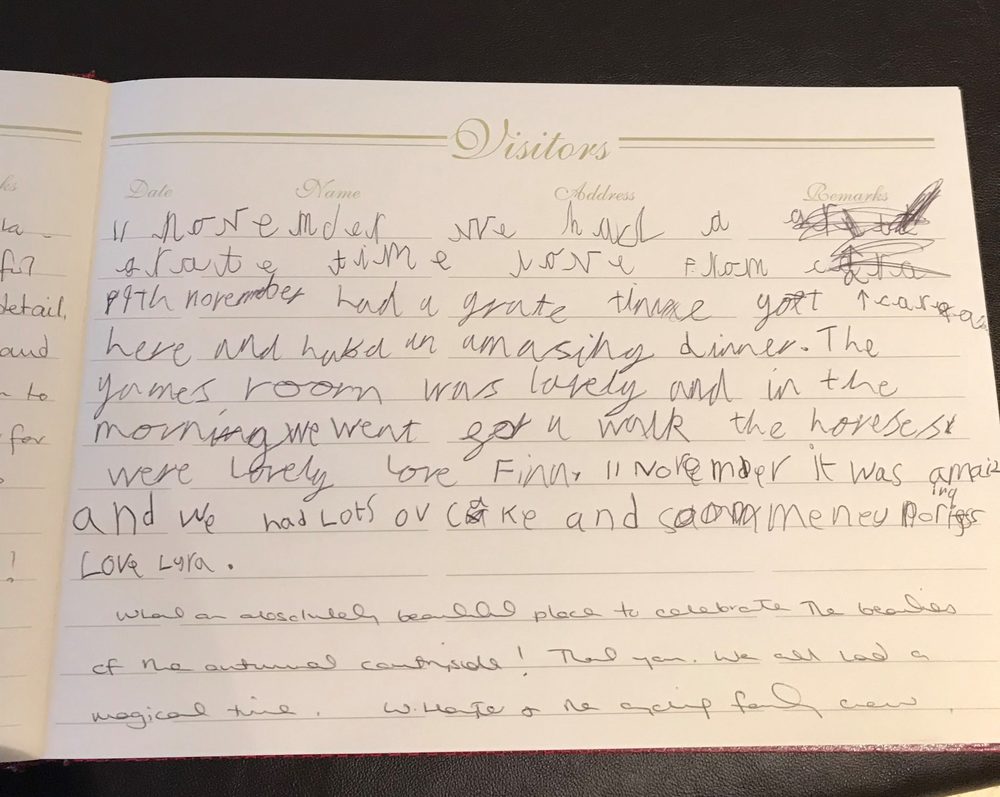 ks
Visitors
Date Name Address Remarks
11 november we had a
grate time love from
detail,
november had a grate time
and
here and had an amasing dinner. The
n to
games room was lovely and in the
for
morning we went a walk the horeses
were Lovely Love Finn. 11 November it was amaizing
and we had Lots ov Cake and so meney
!
Love Lyra.
What an absolutely beautiful place to celebrate the beauties
of the autumnal countryside! Thank you. We all had a
magical time. & the family crew.